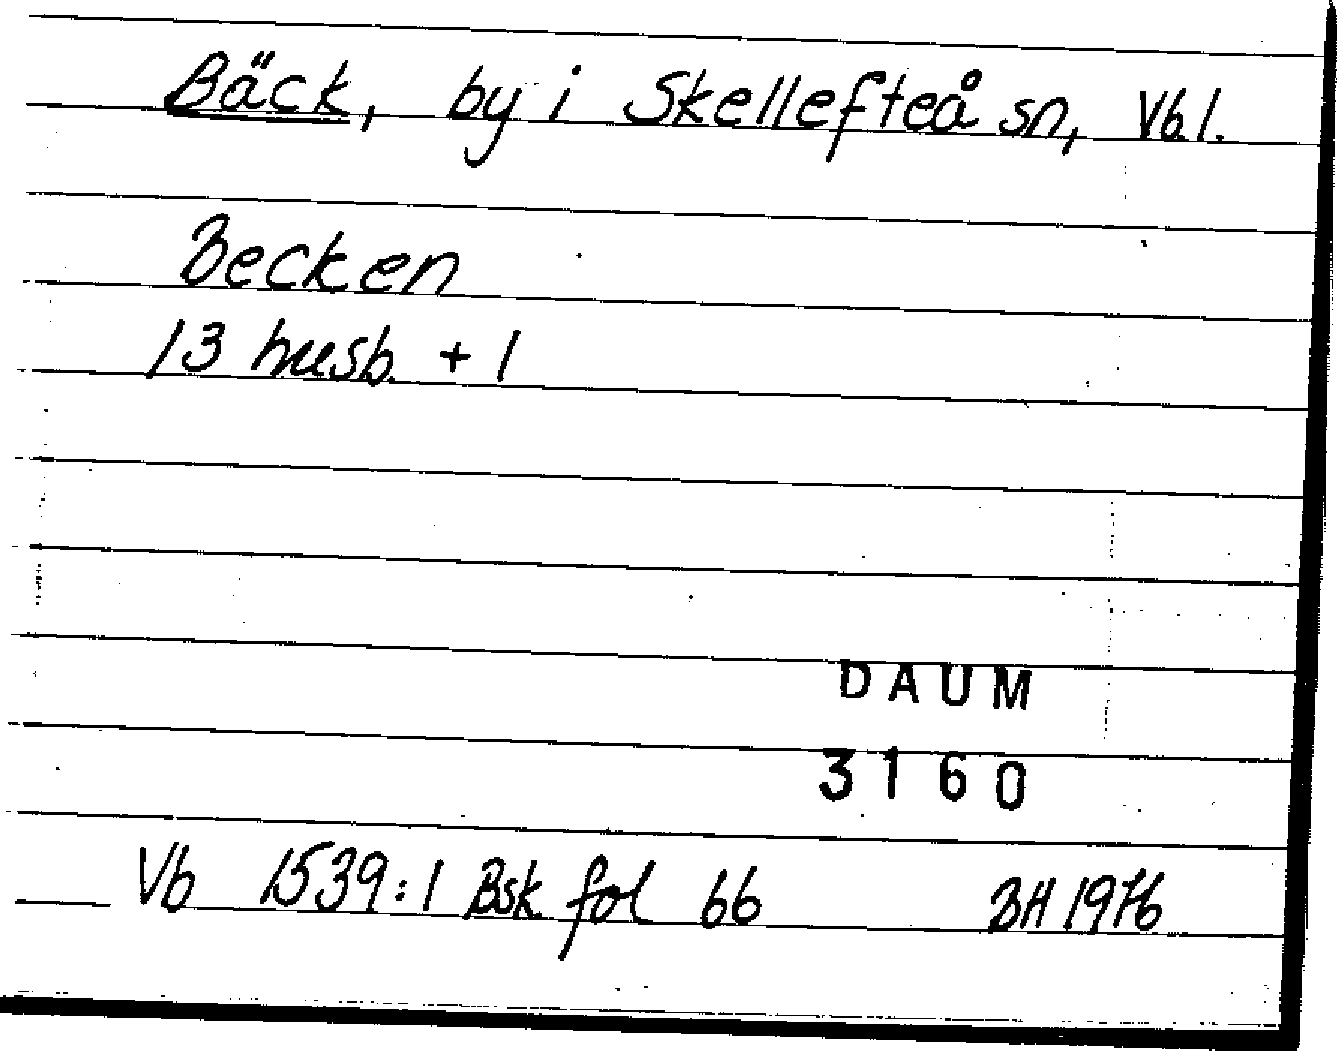 Bäck, by i Skellefteå sn, Vbl.
Becken
13 husb. + 1
DAUM
3160
Vb 1539:1 Bsk fol 66 BH 1976